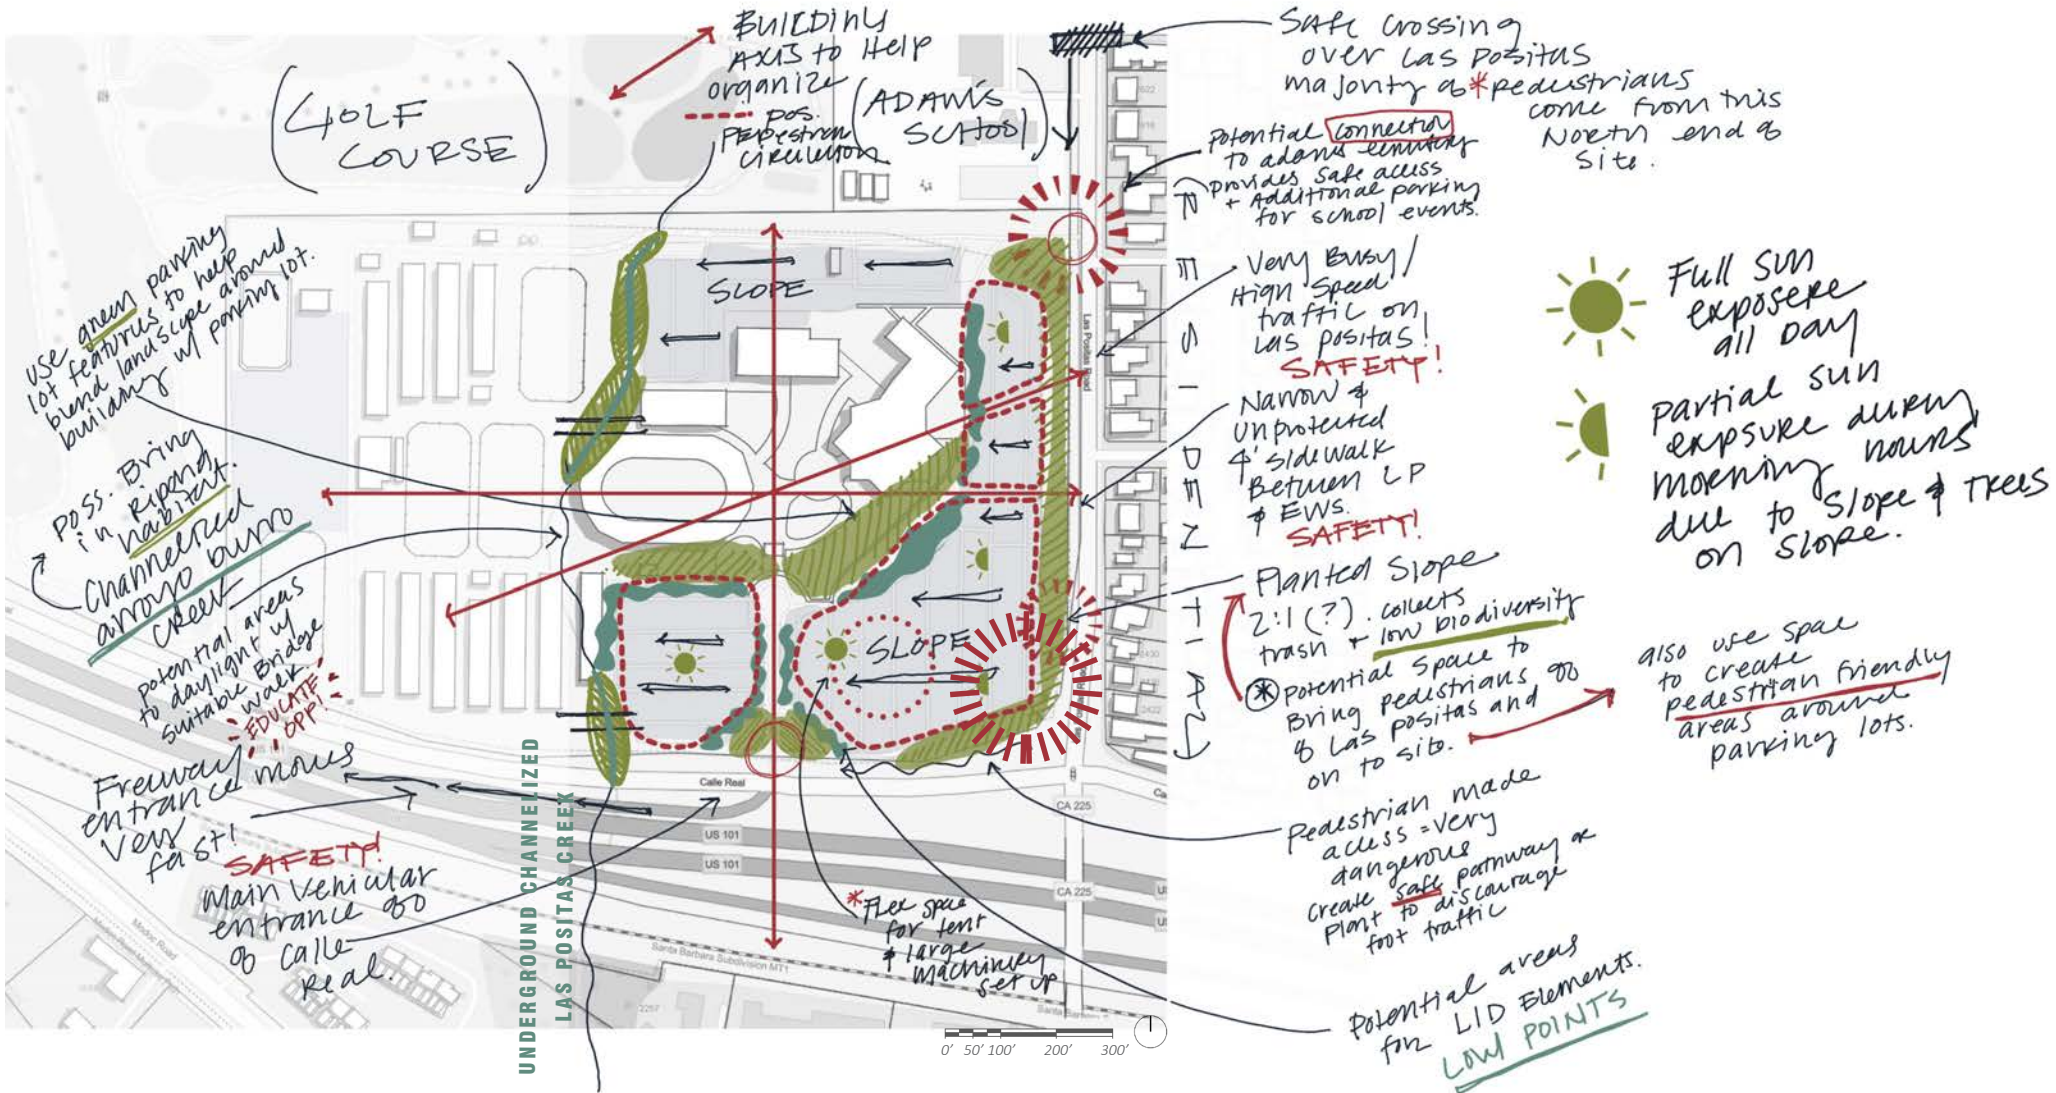 BUILDING
AXIS to Help
organize
pos.
PEDESTRIAN
CIRCULATION
(GOLF
COURSE)
(ADAMS
SCHOOL)
Safe Crossing
over Las Positas
majority of *pedestrians
come from this
North end of
Site.
Potential connection
to adams
Provides safe access
+ Additional parking
for school events.
Very Busy/
High Speed
traffic on
Las Positas!
SAFETY!
Narrow &
Unprotected
4' Sidewalk
Between LP
& EWS.
SAFETY!
Planted Slope
2:1 (?). collects
trash + low biodiversity
* Potential Space to
Bring pedestrians off
of Las Positas and
on to site.
also use space
to create
pedestrian friendly
areas around
parking lots.
Pedestrian made
access = very
dangerous
Create safe pathway or
Plant to discourage
foot traffic
Potential areas
for LID Elements.
LOW POINTS
Full Sun
exposere
all Day
Partial sun
expsure during
morning hours
due to Slope & Trees
on Slope.
RESIDENTIAL
use green parking
lot features to help
blend landscape around
building w/ parking lot.
poss. Bring
in Riparid
habitat.
Channelized
arroyo burro
creek
potential areas
to daylight w/
suitable Bridge
walk.
EDUCATE
OPP!
Freeway
entrance moves
very
fast!
SAFETY!
Main Vehicular
entrance off
of Calle
Real.
* Flex space
for tent
& large
machinery
set up
SLOPE
SLOPE
UNDERGROUND CHANNELIZED
LAS POSITAS CREEK
Las Positas Road
Calle Real
US 101
US 101
CA 225
CA 225
Modoc Road
Modoc Road
Santa Barbara Subdivision MT1
2257
2430
2422
622
616
0' 50' 100' 200' 300'